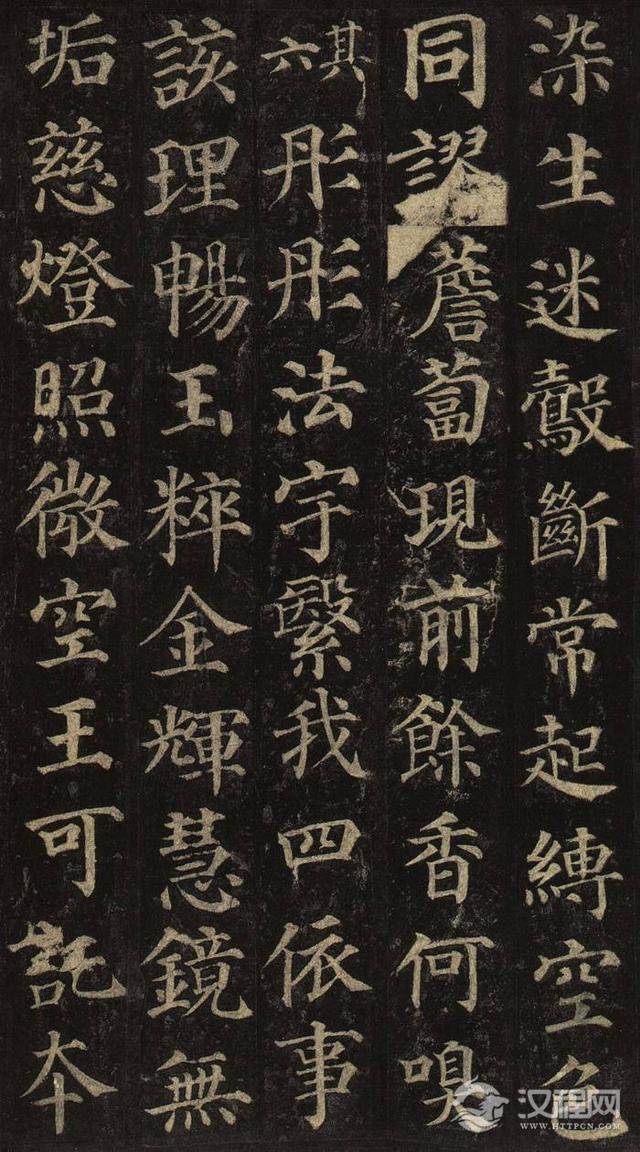 染生迷鷇斷常起縛空色
同謬薝蔔現前餘香何嗅
其六彤彤法宇繄我四依事
該理暢玉粹金輝慧鏡無
垢慈燈照微空王可託夲
汉程网
WWW.HTTPCN.COM